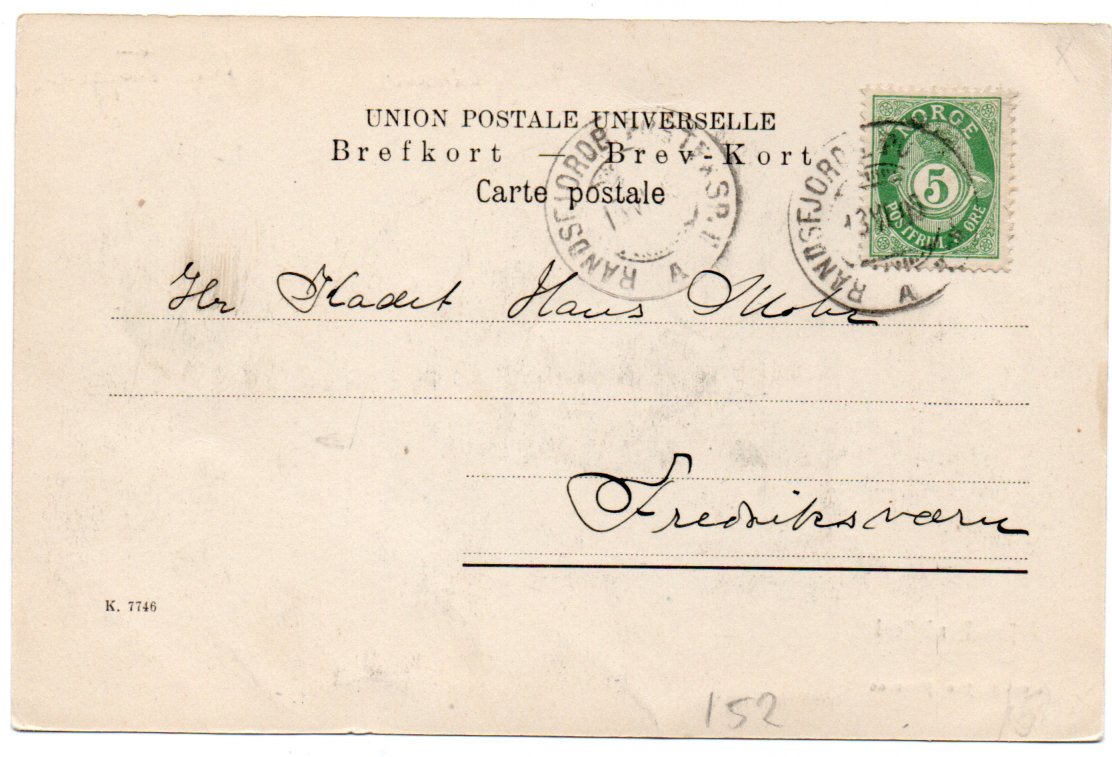 UNION POSTALE UNIVERSELLE
Brefkort — Brev-Kort
Carte postale
NORGE
5
POSTFRIM. 5 ØRE
RANDSFJORDB
A
RANDSFJORD
A
Hr Kadet Hans Mohr
Fredriksværn
K. 7746
152